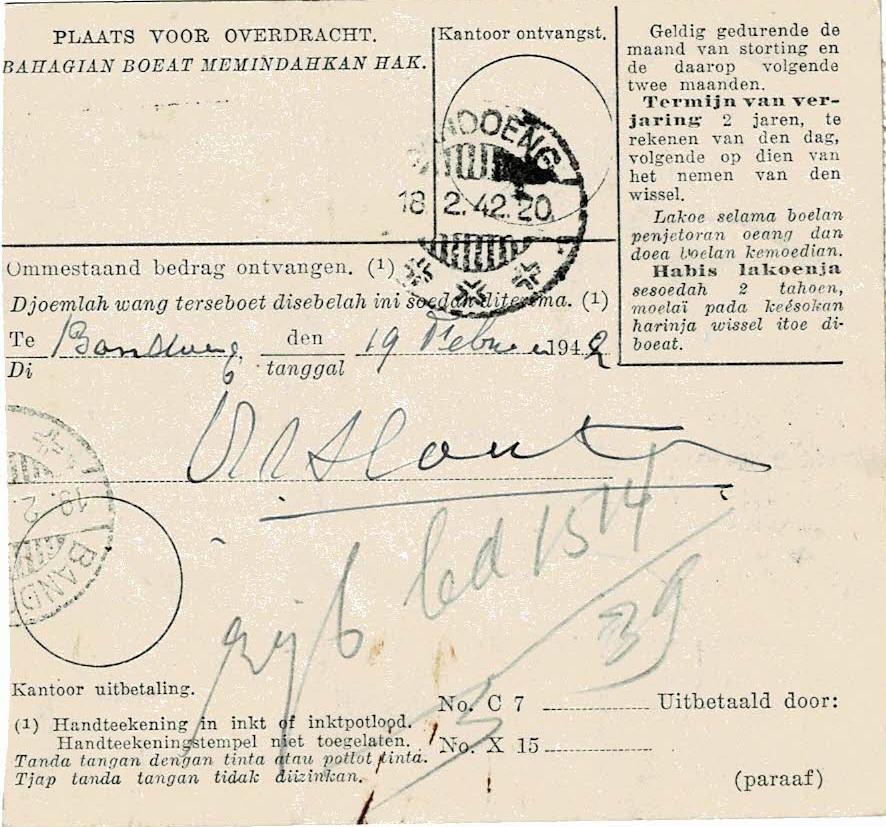 PLAATS VOOR OVERDRACHT.
BAHAGIAN BOEAT MEMINDAHKAN HAK.
Kantoor ontvangst.
Geldig gedurende de
maand van storting en
de daarop volgende
twee maanden.
Termijn van ver-
jaring 2 jaren, te
rekenen van den dag,
volgende op dien van
het nemen van den
wissel.
Lakoe selama boelan
penjetoran oeang dan
doea boelan kemoedian.
Habis lakoenja
sesoedah 2 tahoen,
moelaï pada keésokan
harinja wissel itoe di-
boeat.
BANDOENG
18 2.42.20
Ommestaand bedrag ontvangen. (1)
Djoemlah wang terseboet disebelah ini soedah diterima. (1)
Te Bandoeng, den 19 Februari 1942
Di tanggal
19.2
BAND
rijb led 1514
39
Kantoor uitbetaling.
(1) Handteekening in inkt of inktpotlood.
Handteekeningstempel niet toegelaten.
Tanda tangan dengan tinta atau potlot tinta.
Tjap tanda tangan tidak diizinkan.
No. C 7 Uitbetaald door:
No. X 15
(paraaf)